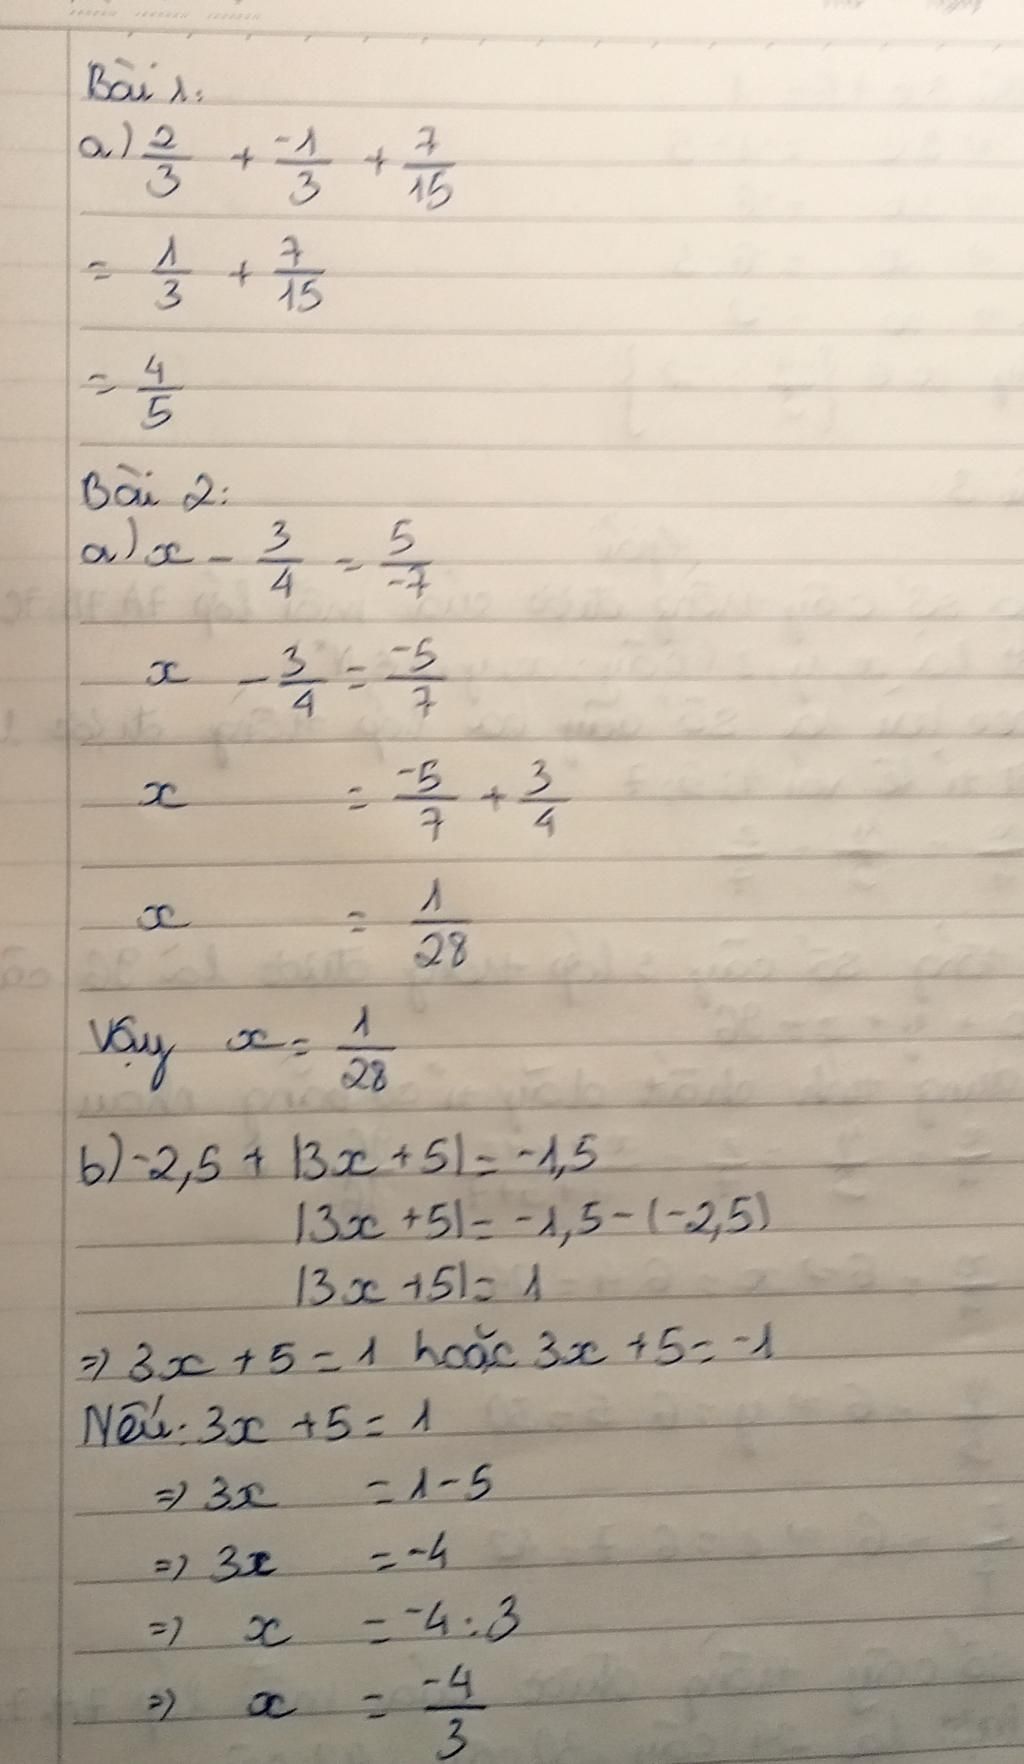 Bài 1:
a) 2/3 + -1/3 + 7/15
= 1/3 + 7/15
= 4/5
Bài 2:
a) x - 3/4 = 5/-7
x - 3/4 = -5/7
x = -5/7 + 3/4
x = 1/28
Vậy x = 1/28
b) -2,5 + |3x + 5| = -1,5
|3x + 5| = -1,5 - (-2,5)
|3x + 5| = 1
=> 3x + 5 = 1 hoặc 3x + 5 = -1
Nếu: 3x + 5 = 1
=> 3x = 1 - 5
=> 3x = -4
=> x = -4 : 3
=> x = -4/3